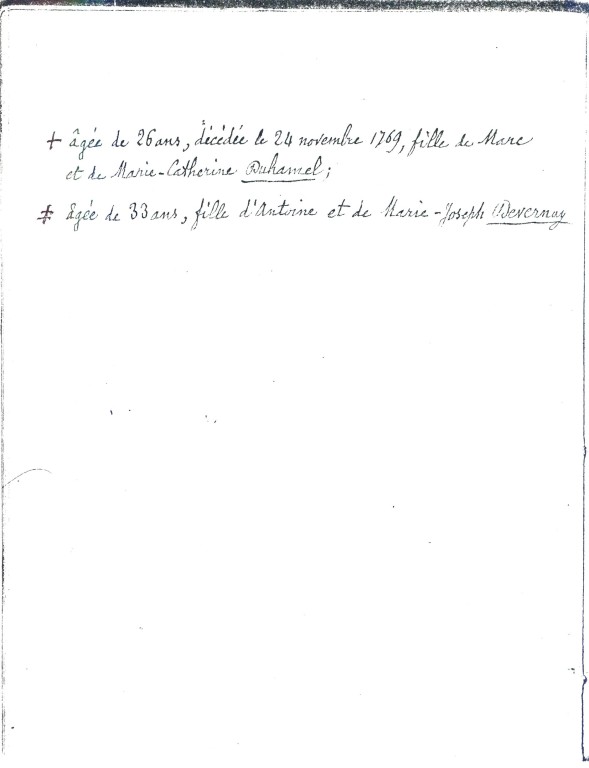 + âgée de 26 ans, décédée le 24 novembre 1769, fille de Marc
et de Marie-Catherine Duhamel;
‡ âgée de 33 ans, fille d'Antoine et de Marie-Joseph Devernay